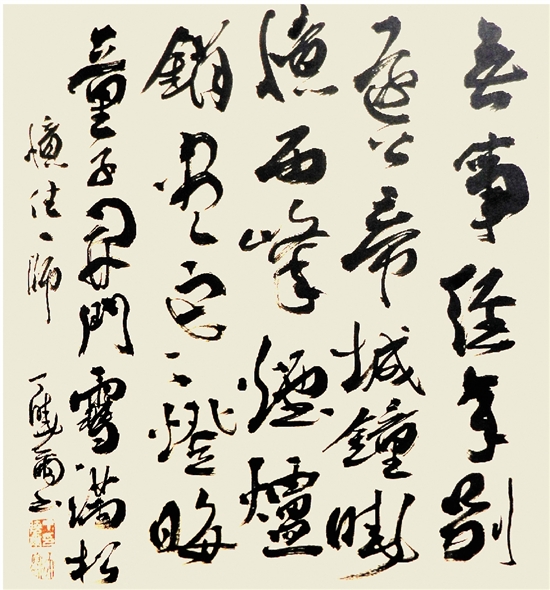 無事經年別
遠公帝城鐘曉
憶西峰煙爐
銷盡寒燈晦
童子開門雪滿松
憶住一師
丁曉爾書